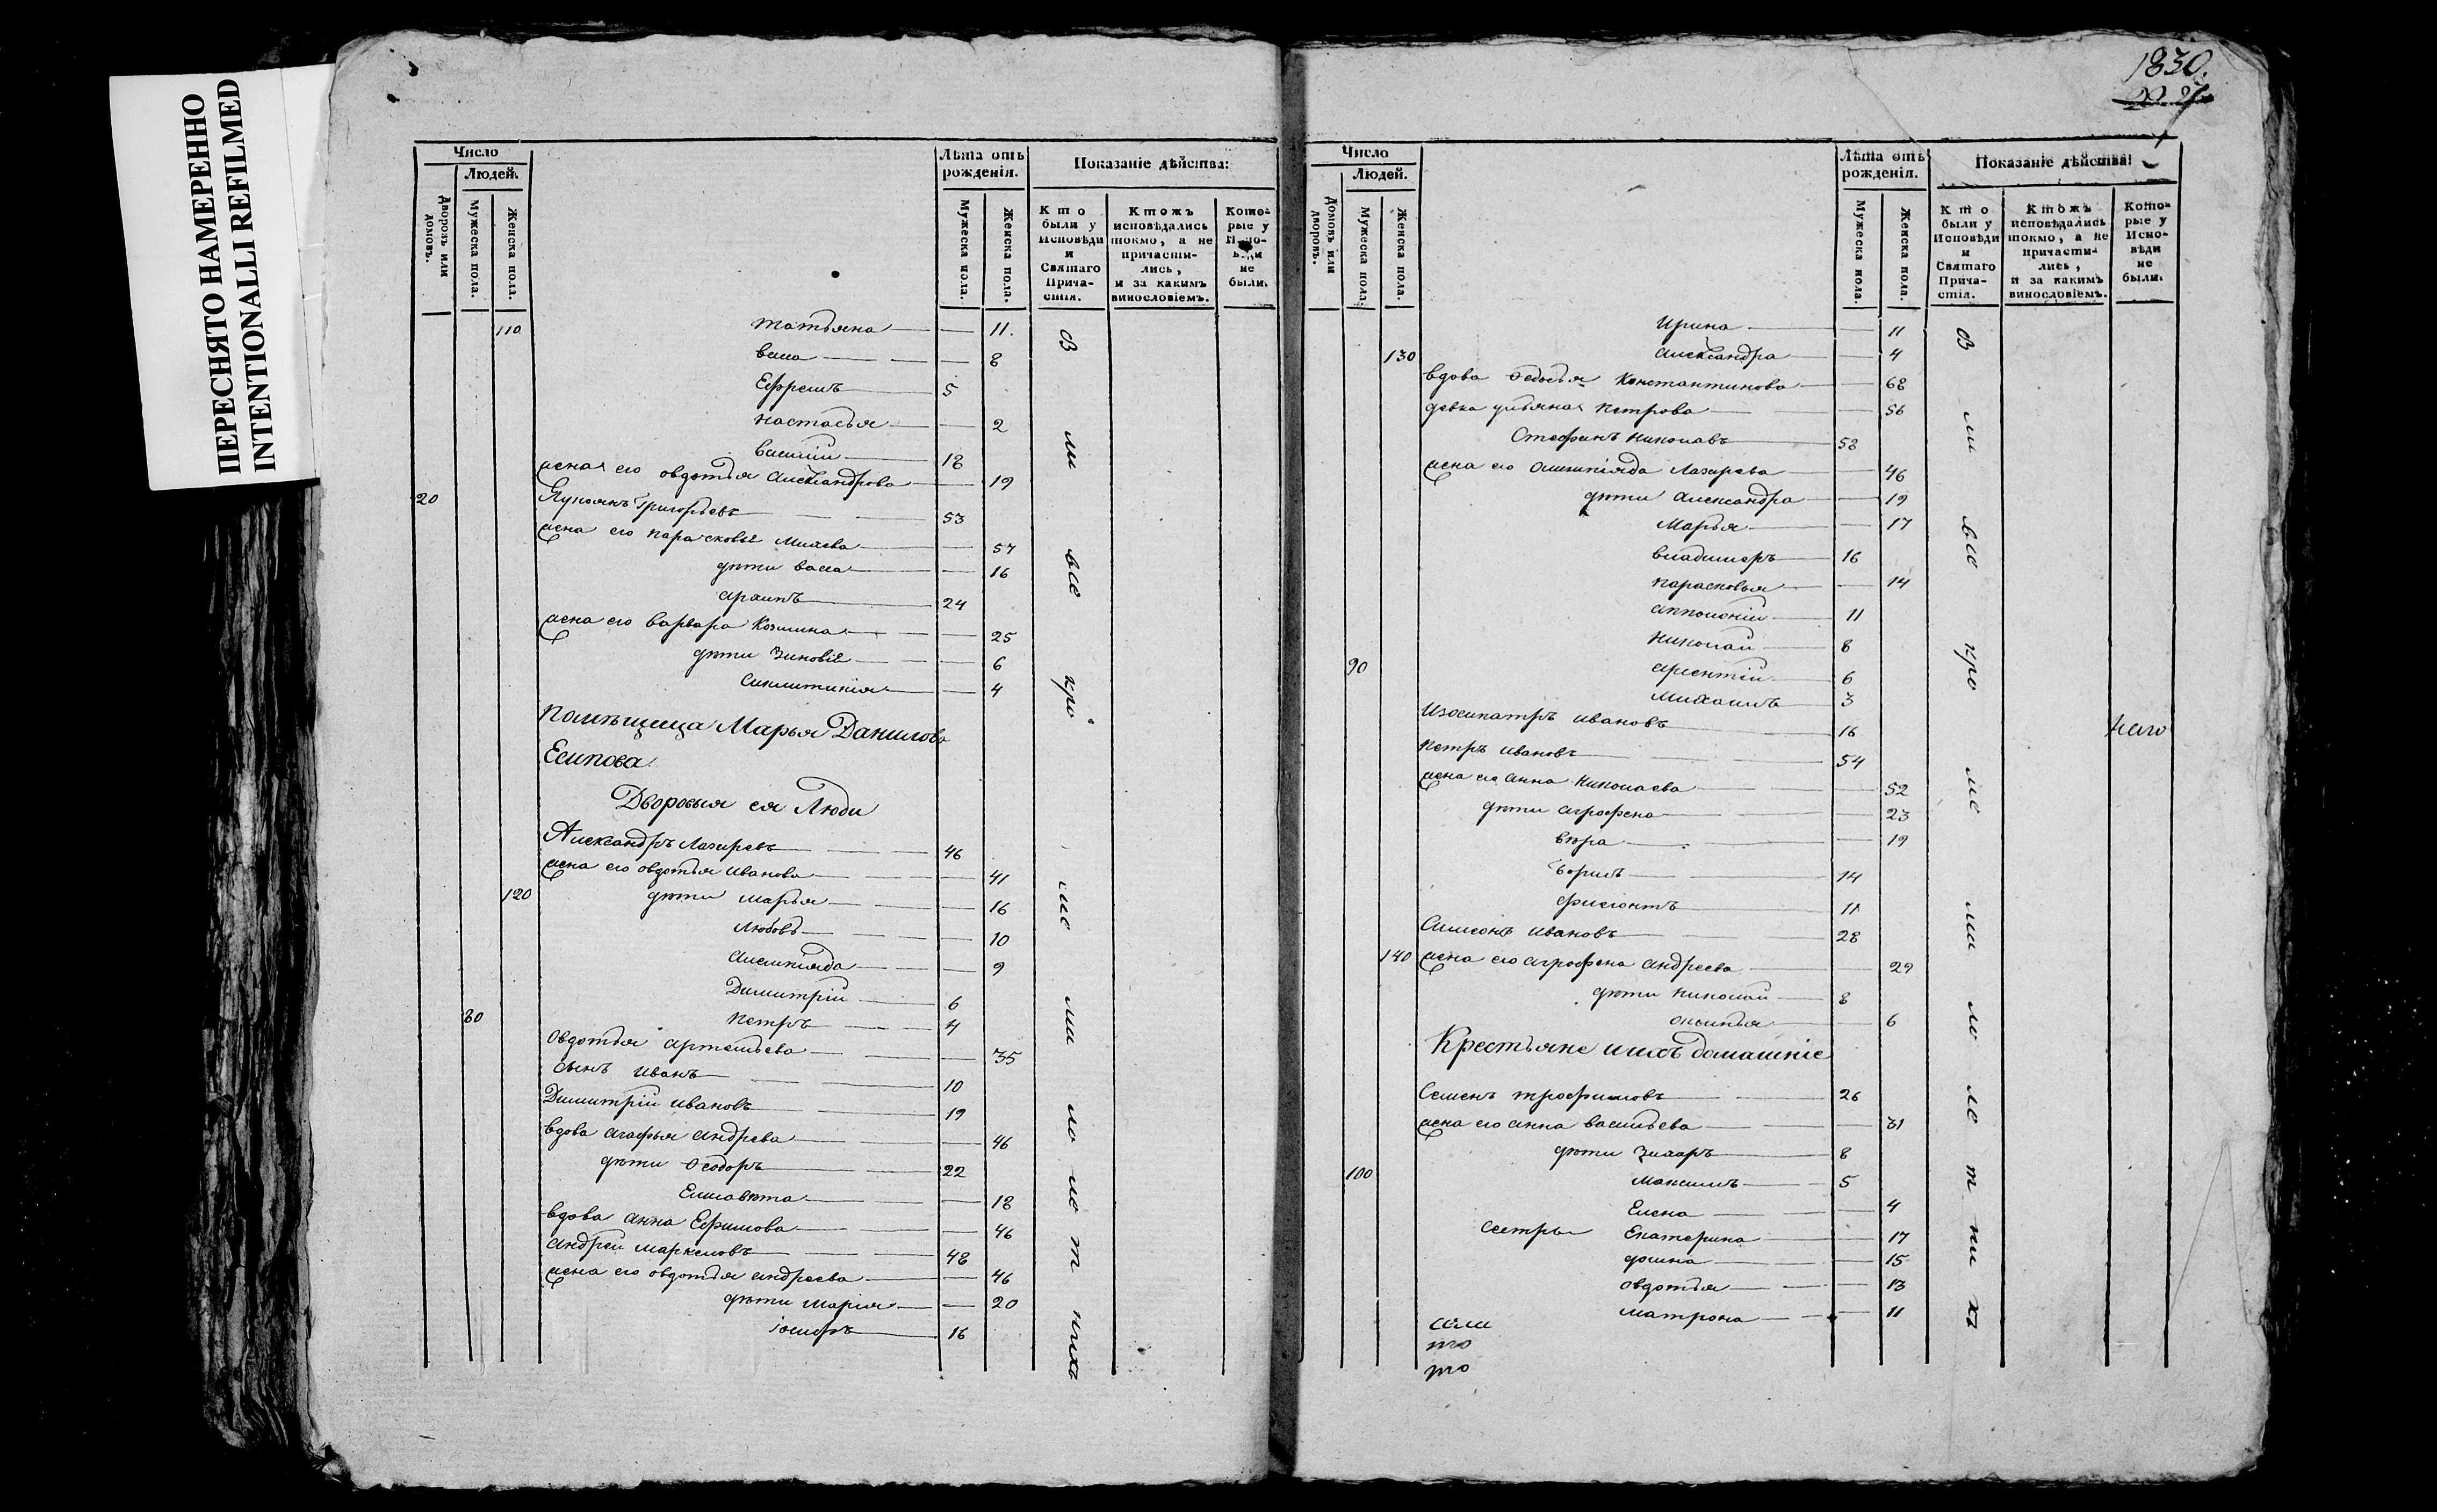 ПЕРЕСНЯТО НАМЕРЕННО
INTENTIONALLI REFILMED
Число
Людей.
Дворовъ или домовъ.
Мужеска пола.
Женска пола.
Лѣта отъ рожденія.
Мужеска пола.
Женска пола.
Показаніе дѣйства:
Кто были у Исповѣди и Святаго Прича-стія.
Ктожъ исповѣдались токмо, а не причасти-лись, и за какимъ винословіемъ.
Кото-рые у Испо-вѣди не были.
110 татьяна 11.
васа 8
Ефремъ 5
настасья 2
василій 18
жена его овдотья александрова 19
20 Лупоянъ Григорьевъ 53
жена его парасковья Михеева 57
дѣти васса 16
архипъ 24
жена его варвара Козмина 25
дѣти Зиновіе 6
Синклитикія 4
помѣщица Марья Данилова
Есипова
Дворовыя ея Люди
Александръ Лазаревъ 46
жена его овдотья Иванова 41
120 дѣти марья 16
любовь 10
9
Димитрій 6
80 петръ 4
овдотья артемьева 35
сынъ иванъ 10
Димитрій ивановъ 19
вдова агафья андреева 46
дѣти Ѳеодоръ 22
Елисавѣта 18
вдова анна Ефимова 46
андрей маркеловъ 48
жена его овдотья андреева 46
дѣти марія 20
іосифъ 16
1830.
Число
Людей.
Домовъ или дворовъ.
Мужеска пола.
Женска пола.
Лѣта отъ рожденія.
Мужеска пола.
Женска пола.
Показаніе дѣйства:
Кто были у Исповѣди и Святаго Прича-стія.
Ктожъ исповѣдались токмо, а не причасти-лись, и за какимъ винословіемъ.
Кото-рые у Испо-вѣди не были.
ирина 11
130 александра 4
вдова Ѳедосья Константинова 68
девка ульяна петрова 56
Стефанъ николаевъ 58
жена его олимпіяда Лазарева 46
дѣти александра 19
марья 17
владимеръ 16
парасковья 14
апполоній 11
николай 8
90 арсентій 6
михаилъ 3
Изосипатръ ивановъ 16
петръ ивановъ 54
жена его анна николаева 52
дѣти агрофена 23
вѣра 19
борисъ 14
филгонтъ 11
Симеонъ ивановъ 28
140 жена его агрофена андреева 29
дѣти николай 8
оксинья 6
Крестьяне ихъ домашніе
Семенъ трофимовъ 26
жена его анна васильева 31
дѣти Захаръ 8
100 максимъ 5
Елена 4
сестры Екатерина 17
15
овдотья 13
матрона 11